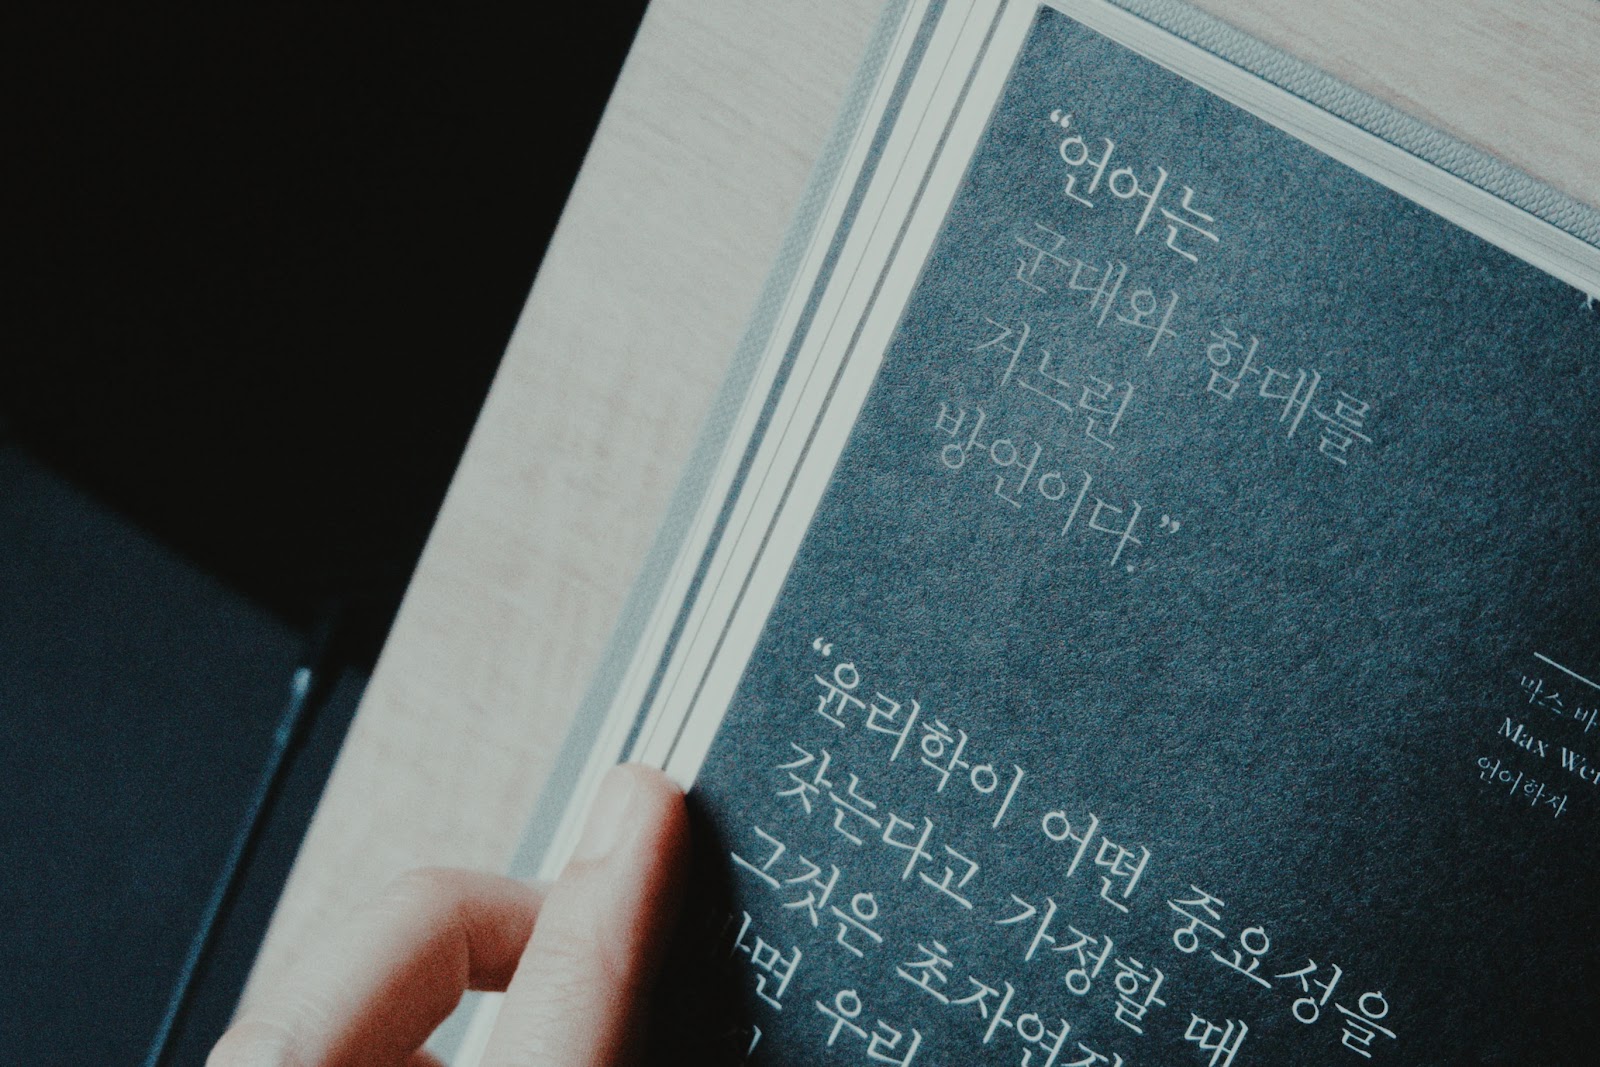 “언어는
군대와 함대를
거느린
방언이다.”
막스
Max
언어학자
“윤리학이 어떤 중요성을
갖는다고 가정할 때
그것은
우리